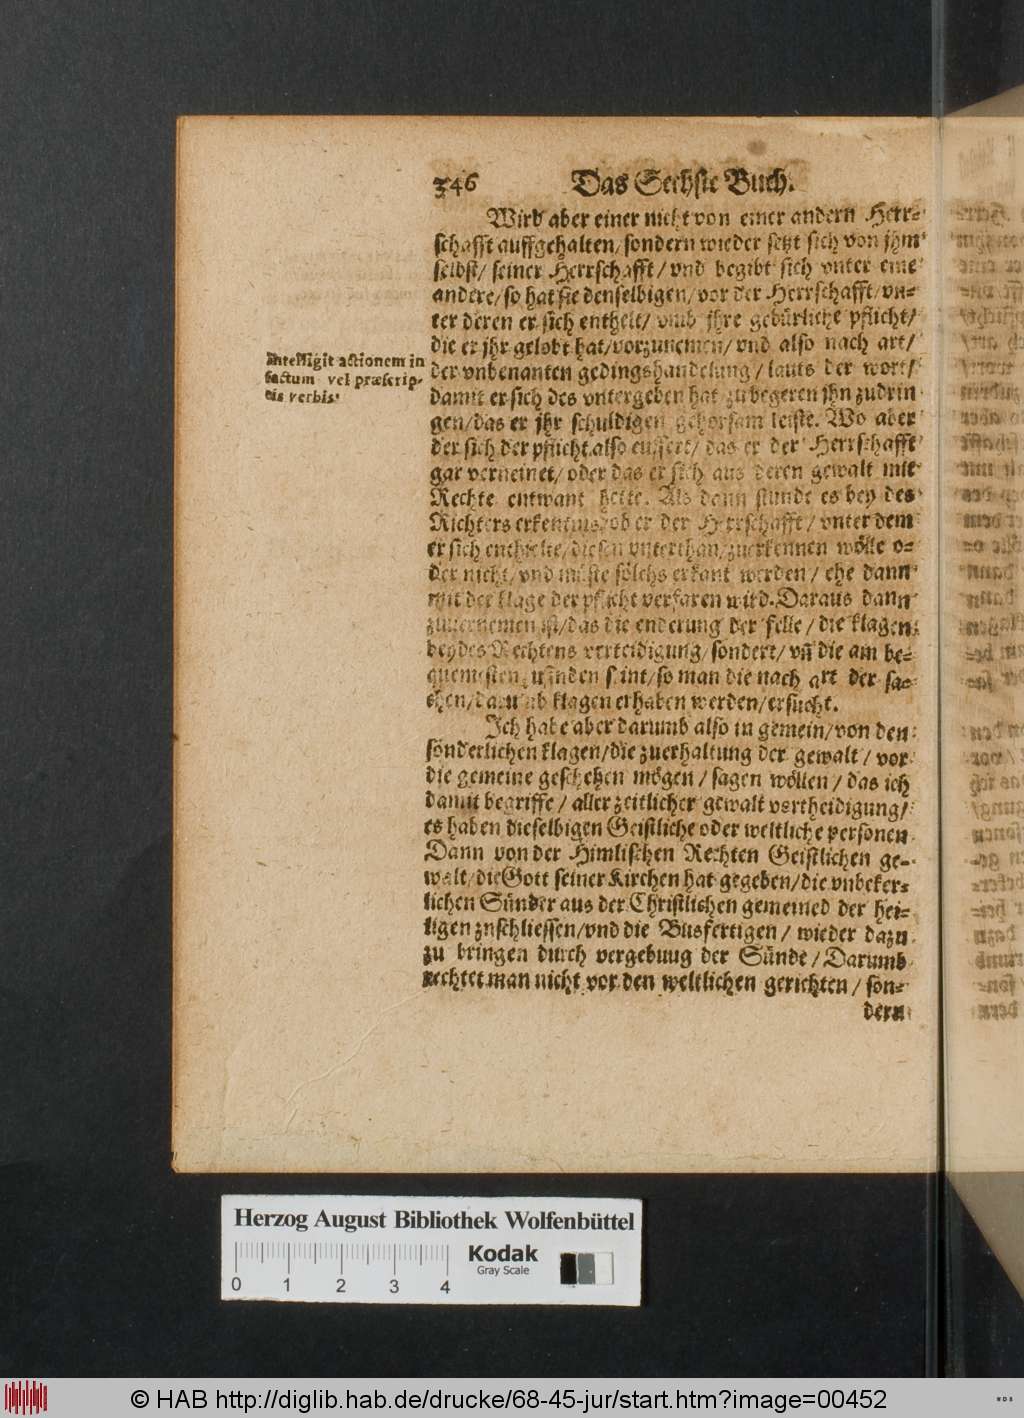 346 Das Sechste Buch.
Wird aber einer nicht von einer andern Herr-
schafft auffgehalten/ sondern wieder setzt sich von jhm
selbst/ seiner Herrschafft/ vnd begibt sich vnter eine
andere/ so hat sie denselbigen/ vor der Herrschafft/ vn-
ter deren er sich enthelt/ vmb jhre gebürliche pflicht/
die er jhr gelobt hat/ vorzunemen/ vnd also nach art/
der vnbenanten gedingshandelung/ lauts der wort/
damit er sich des vntergeben hat zubegeren jhn zudrin
gen/ das er jhr schuldigen gehorsam leiste. Wo aber
der sich der pflicht also eussert/ das er der Herrschafft
gar verneinet/ oder das er sich aus deren gewalt mit
Rechte entwant hette. Als denn stunde es bey des
Richters erkentnis/ ob er der Herrschafft/ vnter dem
er sich enthielte/ diesen vnterthan/ zuerkennen wölle o-
der nicht/ vnd müste sölchs erkant werden/ ehe dann
mit der klage der pflicht verfaren wird. Daraus dann
zuvernemen ist/ das die enderung der felle/ die klagen
bey des Rechtens verteidigung/ sondert/ vñ die am be-
quemisten zufinden sint/ so man die nach art der sa-
chen/ darumb klagen erhaben werden/ ersucht.
Ich habe aber darumb also in gemein/ von den
sonderlichen klagen/ die zuerhaltung der gewalt/ vor
die gemeine geschehen mögen/ sagen wöllen/ das ich
damit begriffe/ aller zeitlicher gewalt vertheidigung/
es haben dieselbigen Geistliche oder weltliche personen
Dann von der Himlischen Rechten Geistlichen ge-
walt/ die Gott seiner Kirchen hat gegeben/ die vnbeker-
lichen Sünder aus der Christlichen gemeined der hei-
ligen znschliessen/ vnd die Busfertigen/ wieder dazu
zu bringen durch vergebuug der Sünde/ Darumb
rechtet man nicht vor den weltlichen gerichten/ son-
dern
Intelligit actionem in
factum vel præscrip-
tis verbis.
Herzog August Bibliothek Wolfenbüttel
0 1 2 3 4
Kodak
Gray Scale
© HAB http://diglib.hab.de/drucke/68-45-jur/start.htm?image=00452